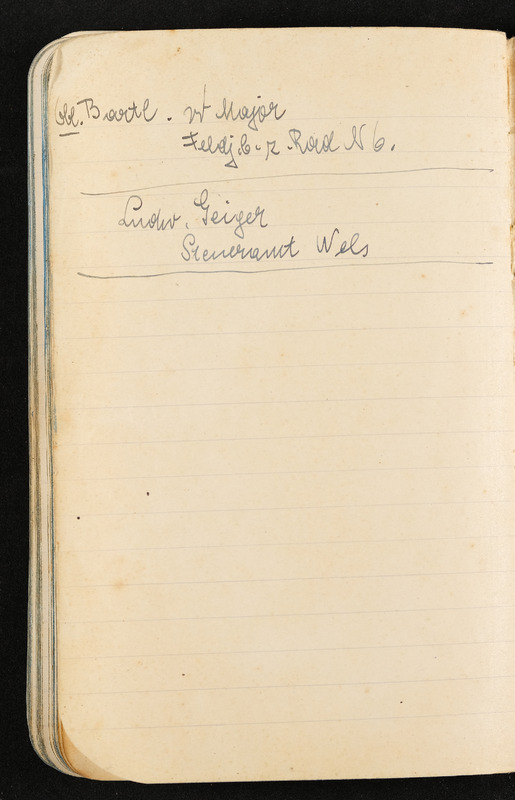 Obl. Bartl. w Major
Feldj. b. z. Rad N 6.
Ludw. Geiger
Steueramt Wels